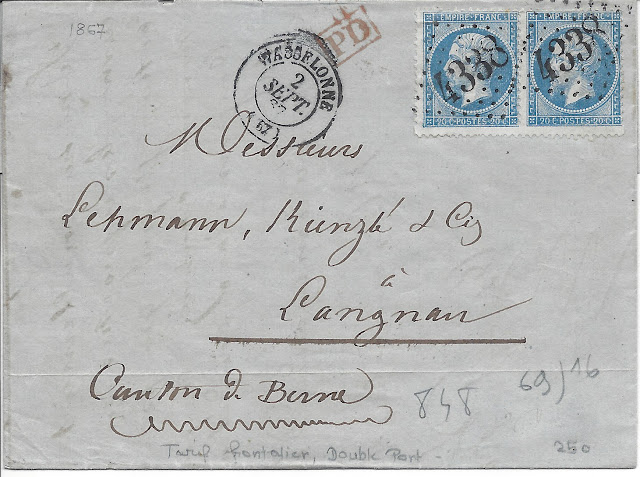 1867
WASSELONNE
2
SEPT.
67
(67)
PD
EMPIRE FRANC
20 C POSTES 20 C
4338
EMPIRE FRANC
20 C POSTES 20 C
4338
Messieurs
Lehmann, Künzlé & Cie
à
Langnau
Canton de Berne
848
69) 16
Tarif frontalier, Double Port -
250